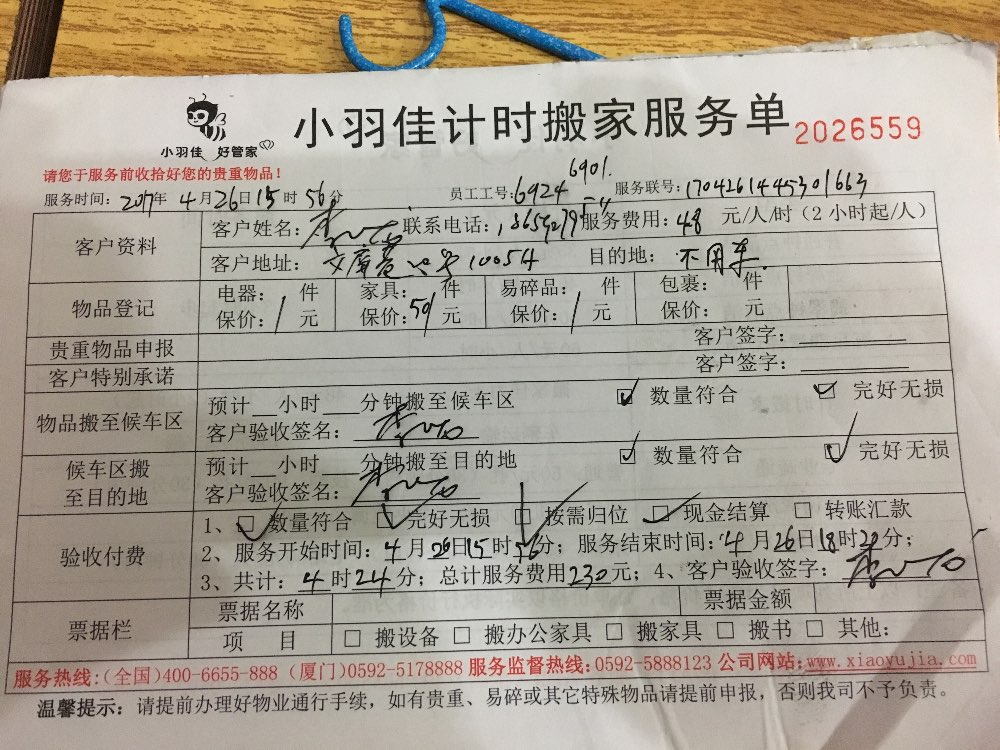 小羽佳 好管家
小羽佳计时搬家服务单
2026559
请您于服务前收拾好您的贵重物品!
6901.
服务时间: 2017年 4月26日15时56分 员工工号: 6924 服务联号: 1704261445301663
客户资料 客户姓名: 联系电话: 服务费用: 48 元/人/时 (2小时起/人)
客户地址: 目的地: 不用车
物品登记 电器: 件 家具: 件 易碎品: 件 包裹: 件
保价: / 元 保价: 50/ 元 保价: / 元 保价: 元
贵重物品申报 客户签字:
客户特别承诺 客户签字:
物品搬至候车区 预计__小时___分钟搬至候车区 ☑ 数量符合 ☑ 完好无损
客户验收签名:
候车区搬至目的地 预计__小时___分钟搬至目的地 ☑ 数量符合 ☑ 完好无损
客户验收签名:
验收付费 1、☑ 数量符合 ☑ 完好无损 ☑ 按需归位 ☑ 现金结算 □ 转账汇款
2、服务开始时间: 4月26日15时56分; 服务结束时间: 4月26日18时分;
3、共计: 4时24分; 总计服务费用230元; 4、客户验收签字:
票据栏 票据名称 票据金额
项 目 □ 搬设备 □ 搬办公家具 □ 搬家具 □ 搬书 □ 其他:
服务热线:(全国)400-6655-888 (厦门)0592-5178888 服务监督热线:0592-5888123 公司网站:www.xiaoyujia.com
温馨提示: 请提前办理好物业通行手续, 如有贵重、易碎或其它特殊物品请提前申报, 否则我司不予负责。